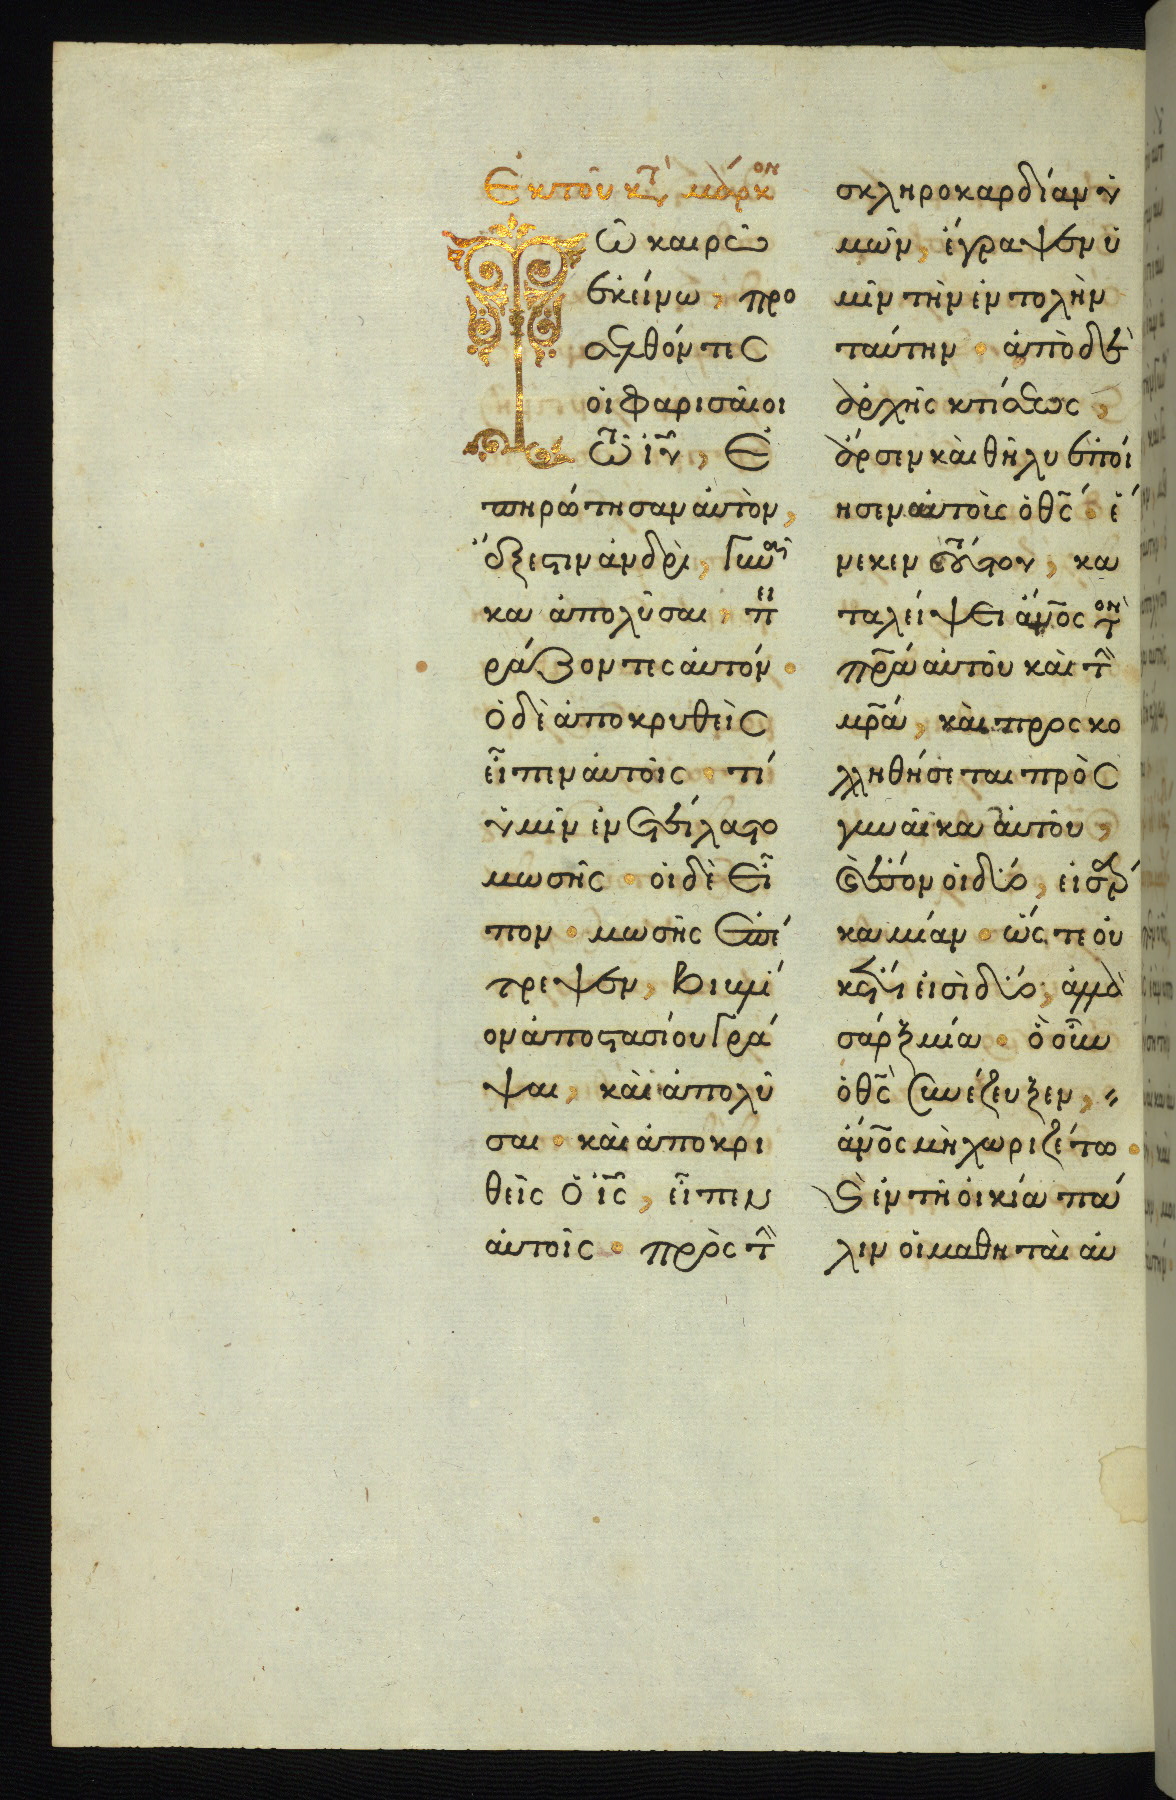 Ἐκ τοῦ κτ μάρκον
Τῶ καιρῶ
ἐκείνω, προ
σελθόντες
οἱ φαρισαῖοι
τῶ ἰυ, ἐ
πηρώτησαν αὐτὸν,
εἰ ἔξεστιν ἀνδρὶ, γυναῖ
κα ἀπολῦσαι, πει
ράζοντες αὐτόν.
ὁ δὲ ἀποκρυθεὶς
εἶπεν αὐτοῖς. τί
ὑμῖν ἐνετείλατο
μωσῆς. οἱ δὲ εἶ
πον. μωσῆς ἐπέ
τρεψεν, βιβλί
ον ἀποστασίου γρά
ψαι, καὶ ἀπολῦ
σαι. καὶ ἀποκρι
θεὶς ὁ ἰς, εἶπεν
αὐτοῖς. πρὸς τὴν
σκληροκαρδίαν ὑ
μῶν, ἔγραψεν ὑ
μῖν τὴν ἐντολὴν
ταύτην. ἀπὸ δὲ
ἀρχῆς κτίσεως,
ἄρσεν καὶ θῆλυ ἐποί
ησεν αὐτοὺς ὁ θς. ἕ
νεκεν τούτου, κα
ταλείψει ἄνος τὸν
πρα αὐτοῦ καὶ τὴν
μρα, καὶ προσκο
λληθήσεται πρὸς
γυναῖκα αὐτοῦ,
καὶ ἔσονται οἱ δύο, εἰς σάρ
κα μίαν. ὥστε οὐ
κέτι εἰσὶ δύο, ἀλλὰ
σὰρξ μία. ὃ οὖν
ὁ θς συνέζευξεν,
ἄνος μὴ χωριζέτω.
καὶ ἐν τῆ οἰκία πά
λιν οἱ μαθηταὶ αὐ